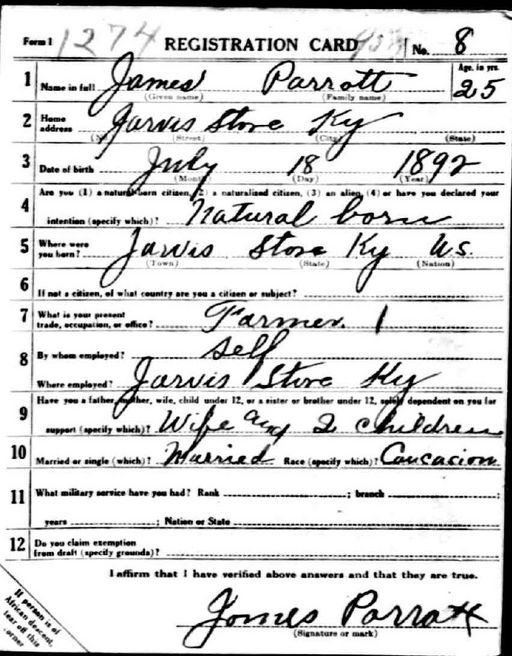 Form 1 1274 REGISTRATION CARD No. 8
1 Name in full James Parrott Age, in yrs. 25
(Given name) (Family name)
2 Home address Jarvis Store Ky
(No.) (Street) (City) (State)
3 Date of birth July 18 1892
(Month) (Day) (Year)
4 Are you (1) a natural born citizen, (2) a naturalized citizen, (3) an alien, (4) or have you declared your
intention (specify which)? Natural born
5 Where were you born? Jarvis Store Ky U.S.
(Town) (State) (Nation)
6 If not a citizen, of what country are you a citizen or subject?
7 What is your present trade, occupation, or office? Farmer 1
8 By whom employed? Self
Where employed? Jarvis Store Ky
9 Have you a father, mother, wife, child under 12, or a sister or brother under 12, solely dependent on you for
support (specify which)? Wife and 2 children
10 Married or single (which)? Married Race (specify which)? Caucasion
11 What military service have you had? Rank ; branch ;
years ; Nation or State
12 Do you claim exemption from draft (specify grounds)?
I affirm that I have verified above answers and that they are true.
James Parrott
(Signature or mark)
If person is of
African descent,
tear off this
corner